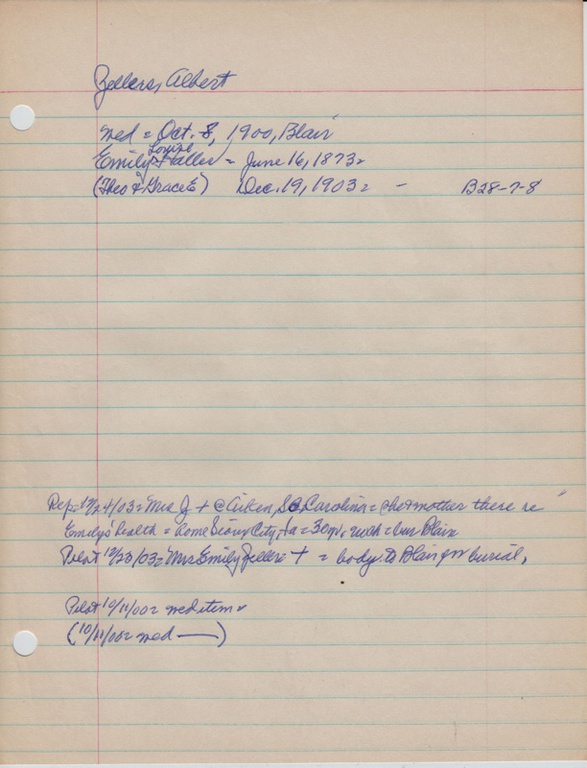 Zellers, Albert
Wed = Oct. 8, 1900, Blair
Louise
Emily Haller = June 16, 1873 =
(Theo & Grace E) Dec. 19, 1903 = - B28-7-8
Rep = 12/24/03 = Mrs Z + @ Aiken, So. Carolina = she & mother there re
Emily's health = home Sioux City, Ia = 30 yr. = bur Blair
Pilot 12/23/03 = Mrs Emily Zellers + = body to Blair for burial,
Pilot 10/11/00 = wed item
(10/11/00 = wed —)